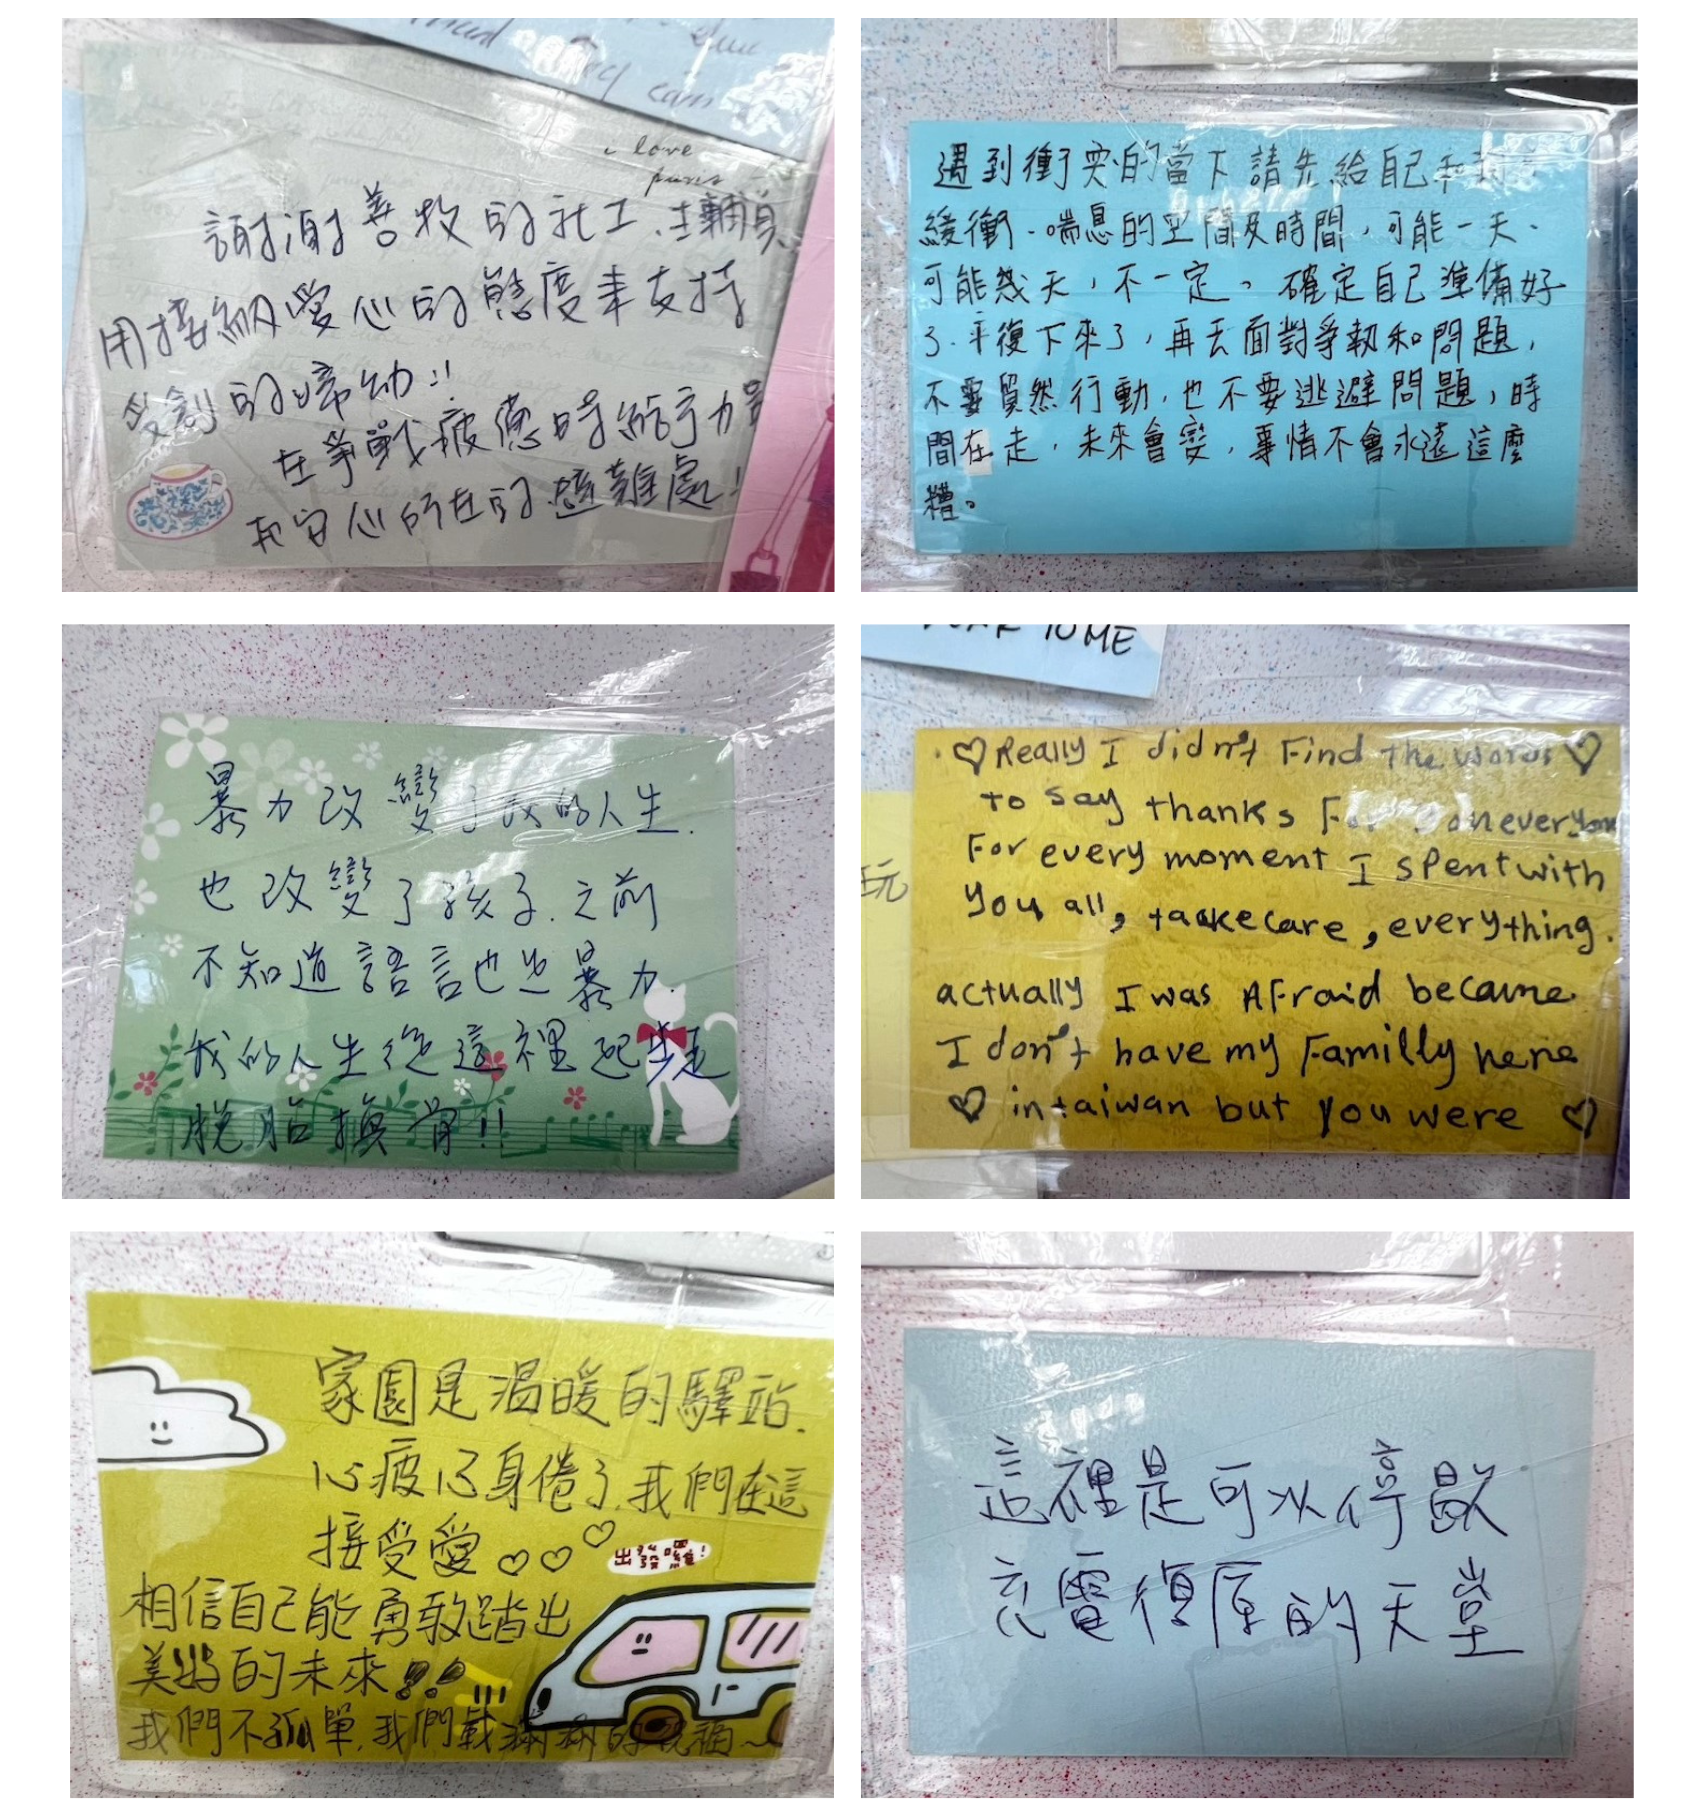 i love
謝謝善牧的社工、生輔員
用接納愛心的態度來支持
受創的婦幼!!
在爭戰疲憊時給予力量
和安心所在的避難處!
遇到衝突的當下請先給自己和對
緩衝、喘息的空間及時間,可能一天、
可能幾天,不一定。確定自己準備好
了、平復下來了,再去面對爭執和問題,
不要貿然行動,也不要逃避問題,時
間在走,未來會變,事情不會永遠這麼
糟。
暴力改變了我的人生.
也改變了孩子.之前
不知道語言也是暴力.
我的人生從這裡起步走
脫胎換骨!!
TO ME
玩
♡ Really I didn't Find the words ♡
to say thanks For everyone
For every moment I spent with
you all, taakecare, everything.
actually I was AFraid because
I don't have my Familly here
♡ in taiwan but you were ♡
家園是溫暖的驛站.
心疲了身倦了.我們在這
接受愛♡♡♡
出發囉!
相信自己能勇敢踏出
美好的未來!!
我們不孤單.我們載滿滿的祝福~
這裡是可以停歇
充電復原的天堂